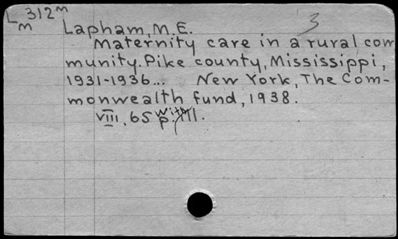 L 312m
m
3
Lapham, M.E.
Maternity care in a rural com
munity. Pike county, Mississippi,
1931-1936... New York, The Com-
monwealth fund, 1938.
VIII, 65 p. with ill.